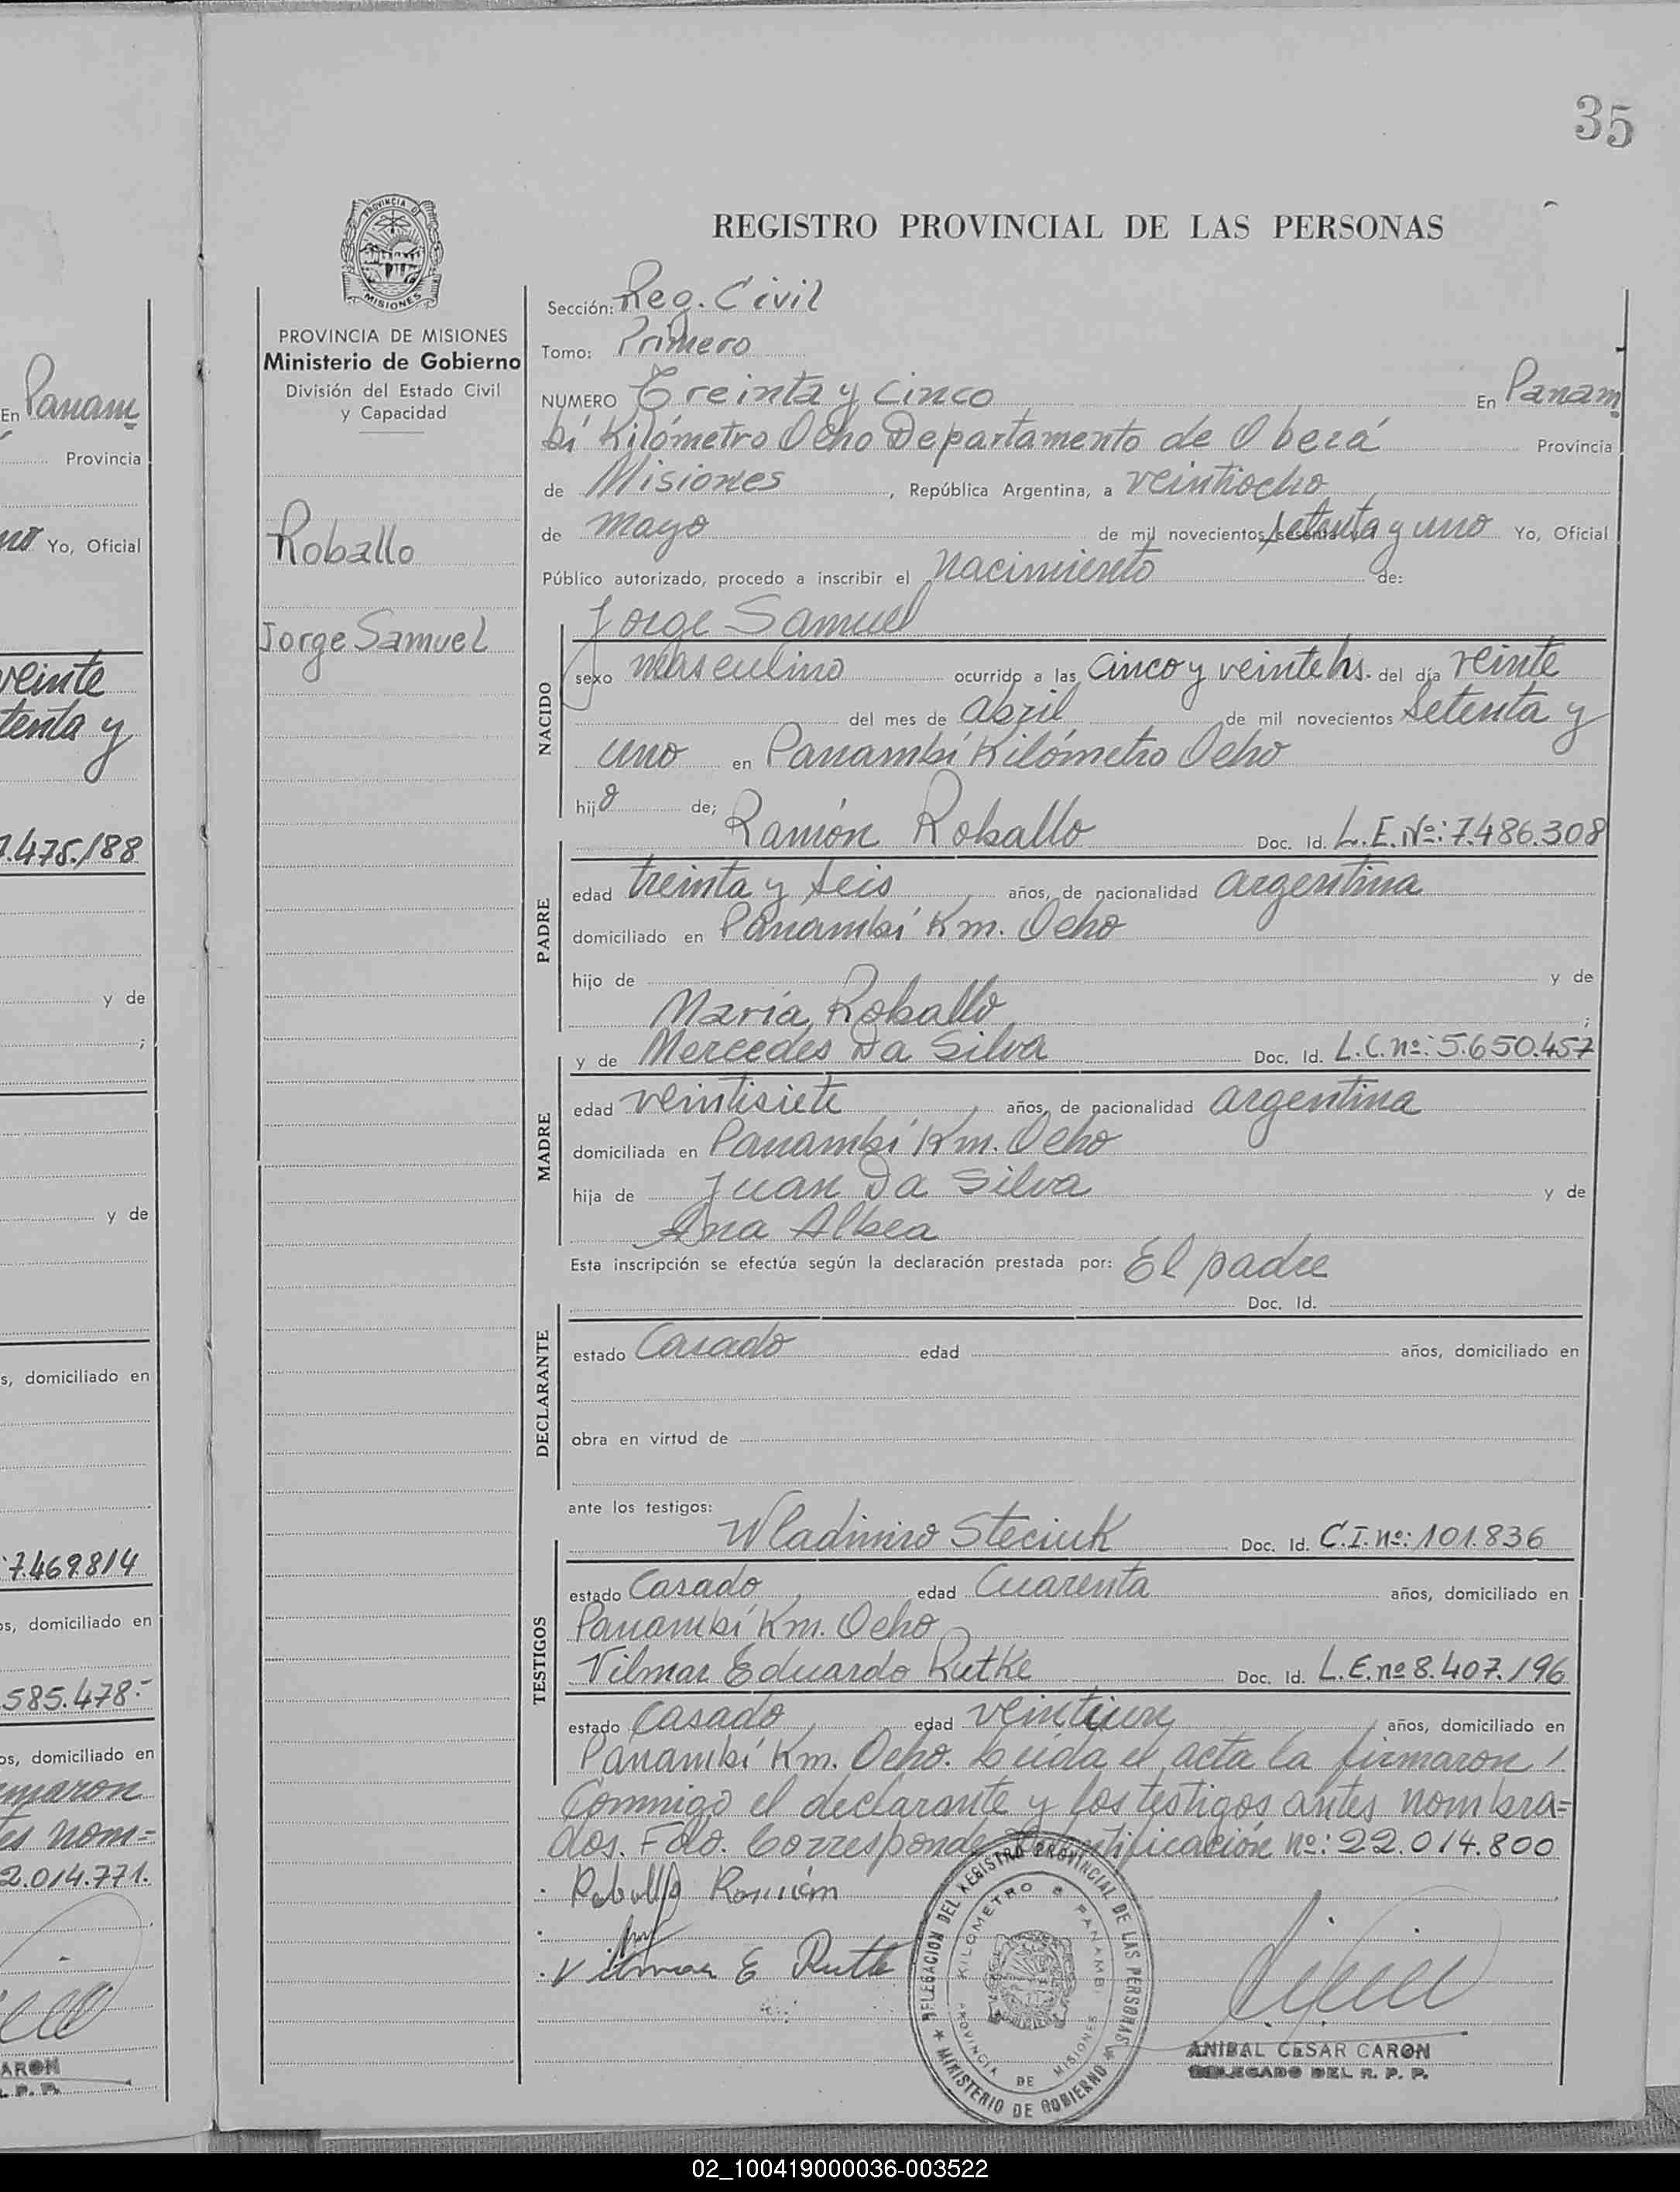 35
PROVINCIA DE
MISIONES
REGISTRO PROVINCIAL DE LAS PERSONAS
PROVINCIA DE MISIONES
Ministerio de Gobierno
División del Estado Civil
y Capacidad
Roballo
Jorge Samuel
Sección: Reg. Civil
Tomo: Primero
NUMERO Treinta y Cinco En Panam
bí Kilómetro Ocho Departamento de Oberá Provincia
de Misiones, República Argentina, a veintiocho
de mayo de mil novecientos setenta y uno Yo, Oficial
Público autorizado, procedo a inscribir el nacimiento de:
Jorge Samuel
NACIDO
sexo masculino ocurrido a las cinco y veinte hs. del día veinte
del mes de abril de mil novecientos setenta y
uno en Panambí Kilómetro Ocho
hijo de;
Ramón Roballo Doc. Id. L.E.Nº: 7.486.308
PADRE
edad treinta y seis años, de nacionalidad argentina
domiciliado en Panambí Km. Ocho
hijo de y de
María Roballo ;
y de Mercedes Da Silva Doc. Id. L.C.nº: 5.650.457
MADRE
edad veintisiete años, de nacionalidad argentina
domiciliada en Panambí Km. Ocho
hija de Juan Da Silva y de
Ana Albea
Esta inscripción se efectúa según la declaración prestada por: El padre
Doc. Id.
DECLARANTE
estado Casado edad años, domiciliado en
obra en virtud de
ante los testigos:
Wladimiro Steciuk Doc. Id. C.I.nº: 101.836
TESTIGOS
estado Casado edad Cuarenta años, domiciliado en
Panambí Km. Ocho
Vilmar Eduardo Rutke Doc. Id. L.E.nº 8.407.196
estado Casado edad veintiun años, domiciliado en
Panambí Km. Ocho. Leída el acta la firmaron
Conmigo el declarante y los testigos antes nombra=
dos. Fdo. Corresponde Identificación nº: 22.014.800
Roballo Ramón
Vilmar E Rutk
DELEGACION DEL REGISTRO PROVINCIAL DE LAS PERSONAS
KILOMETRO 8 PANAMBI
PROVINCIA DE MISIONES
MINISTERIO DE GOBIERNO
ANIBAL CESAR CARON
DELEGADO DEL R. P. P.
En Panam
Provincia
Yo, Oficial
veinte
tenta y
7.475.188
y de
;
y de
s, domiciliado en
:7.469.814
os, domiciliado en
585.478.-
os, domiciliado en
rmaron
es nom=
2.014.771.
ARON
. P. P.
02_100419000036-003522